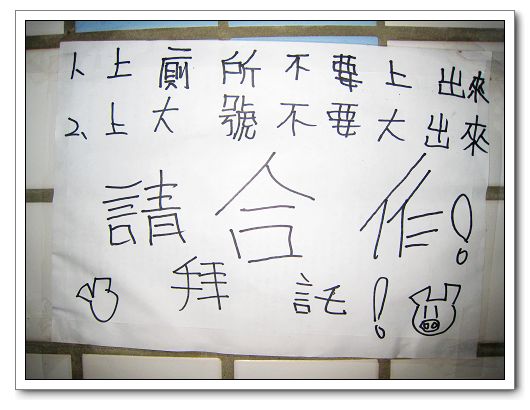 1、上廁所不要上出來
2、上大號不要大出來
請合作!
拜託!